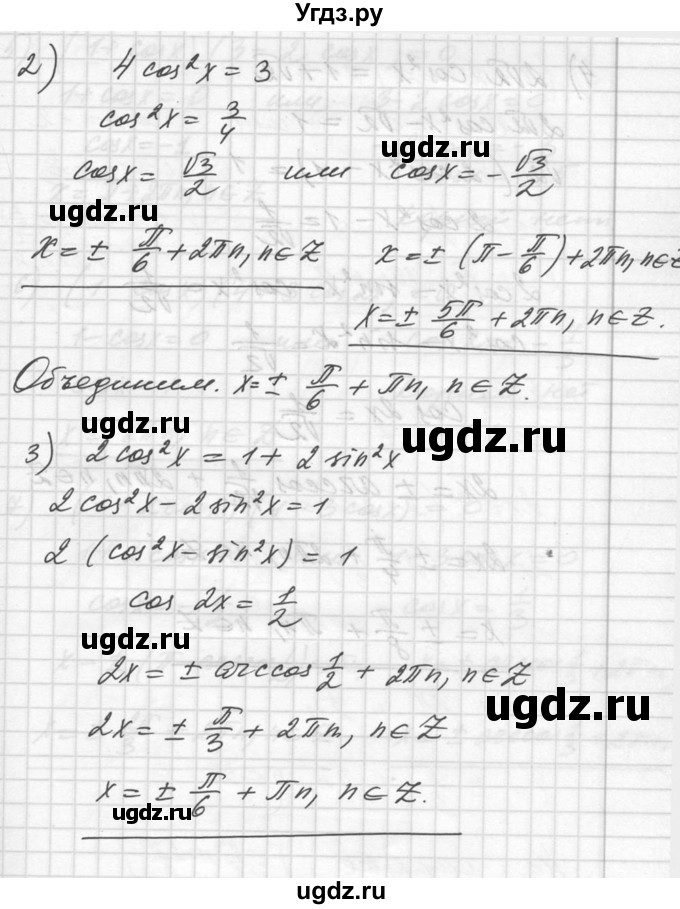 Угдз.ру
2) 4 cos²x = 3
cos²x = 3/4
cosx = √3/2 или cosx = -√3/2
ugdz.ru ugdz.ru
x = ± π/6 + 2πn, n∈Z x = ± (π - π/6) + 2πn, n∈Z
x = ± 5π/6 + 2πn, n∈Z.
Объединим. x = ± π/6 + πn, n∈Z.
ugdz.ru ugdz.ru
3) 2cos²x = 1 + 2sin²x
2cos²x - 2sin²x = 1
2 (cos²x - sin²x) = 1
cos 2x = 1/2
ugdz.ru
2x = ± arccos 1/2 + 2πn, n∈Z
ugdz.ru
2x = ± π/3 + 2πn, n∈Z
x = ± π/6 + πn, n∈Z.
ugdz.ru
ugdz.ru